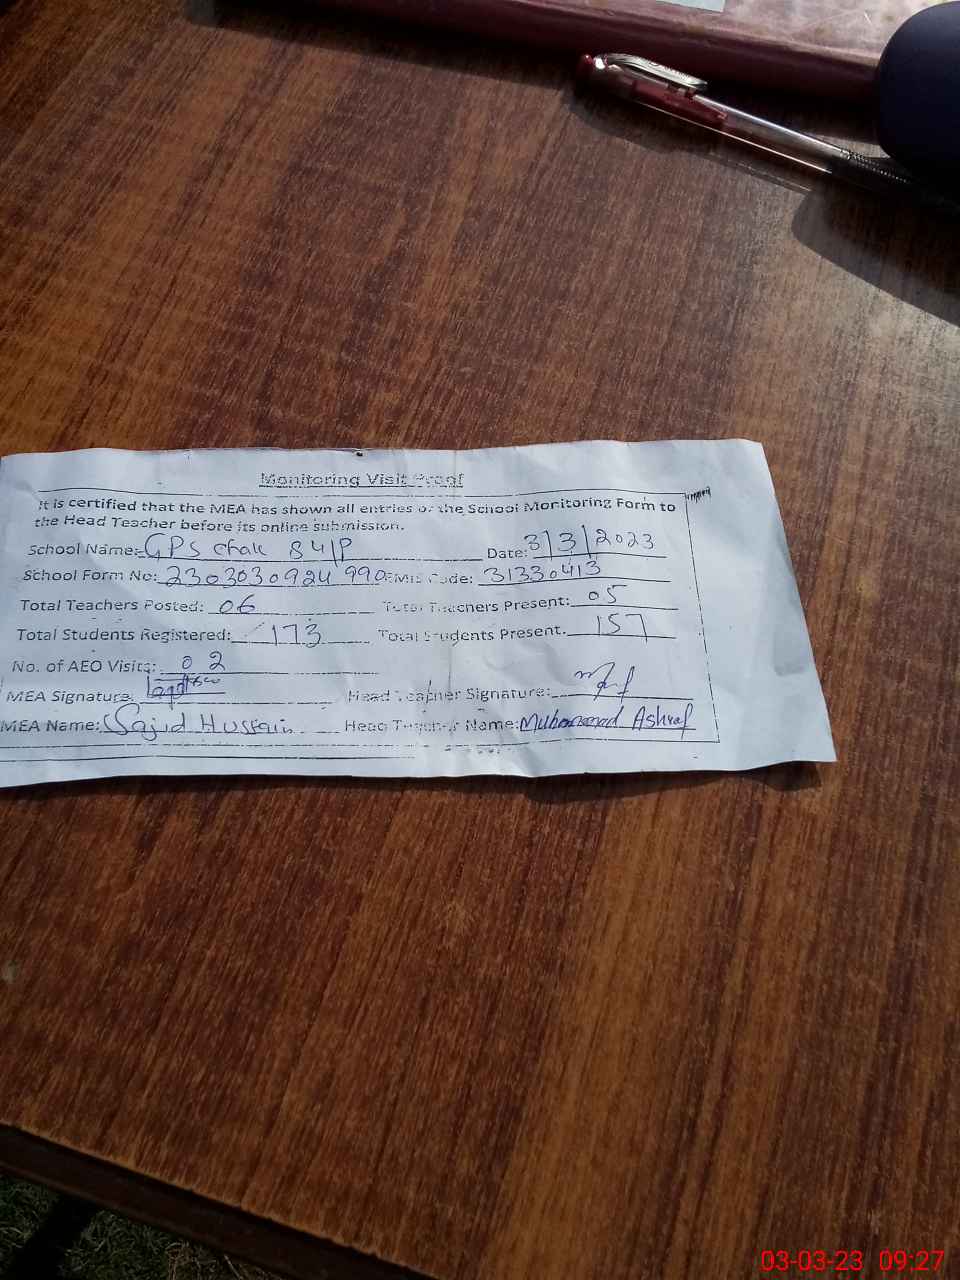 Monitoring Visit Proof
It is certified that the MEA has shown all entries of the School Monitoring Form to
the Head Teacher before its online submission.
School Name: GPS Chak 84/P Date: 3/3/2023
School Form No: 2303030924990 EMIS Code: 31330413
Total Teachers Posted: 06 Total Teachers Present: 05
Total Students Registered: 173 Total Students Present: 157
No. of AEO Visits: 02
MEA Signature: Head Teacher Signature:
MEA Name: Sajid Hussain Head Teacher Name: Muhammad Ashraf
03-03-23 09:27